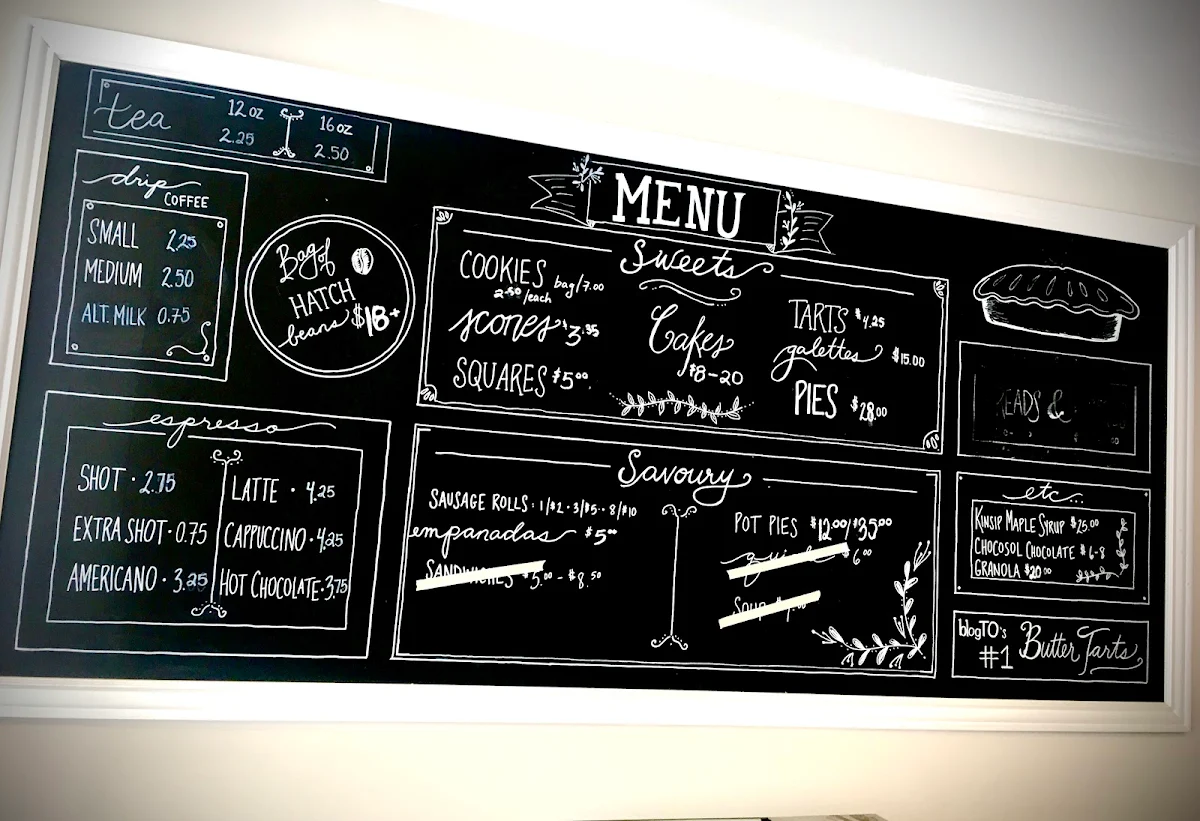 tea 12oz 16oz
2.25 2.50
drip
COFFEE
SMALL 2.25
MEDIUM 2.50
ALT. MILK 0.75
Bag of
HATCH
beans $18+
espresso
SHOT · 2.75
EXTRA SHOT · 0.75
AMERICANO · 3.25
LATTE · 4.25
CAPPUCCINO · 4.25
HOT CHOCOLATE · 3.75
MENU
Sweets
COOKIES bag/7.00
2.50/each
scones $3.95
SQUARES $5.00
Cakes
$8-20
TARTS $4.25
galettes $15.00
PIES $28.00
Savoury
SAUSAGE ROLLS: 1/$2 · 3/$5 · 8/$10
empanadas $5.00
SANDWICHES $5.00 - $8.50
POT PIES $12.00/$35.00
quiche $6.00
Soup
&
etc...
KINSIP MAPLE SYRUP $25.00
CHOCOSOL CHOCOLATE $6-8
GRANOLA $20.00
blogTO's
#1 Butter Tarts